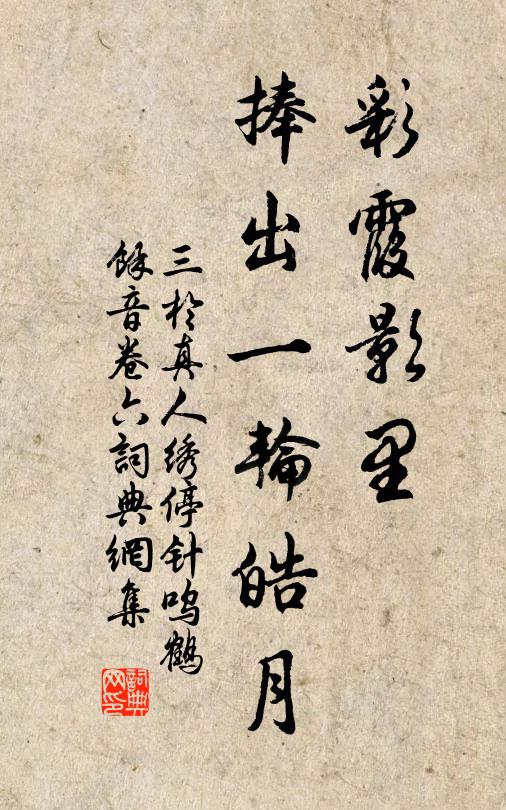 彩霞影里
捧出一輪皓月
三於真人绣停针鸣鶴
餘音卷六詞典網集
詞典
网印